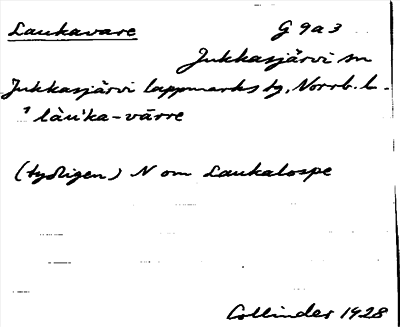 Laukavare G 9a3
Jukkasjärvi sn
Jukkasjärvi lappmarks tg, Norrb. l.
¹ làu'ka-vārre
(tydligen) N om Laukalospe
Collinder 1928